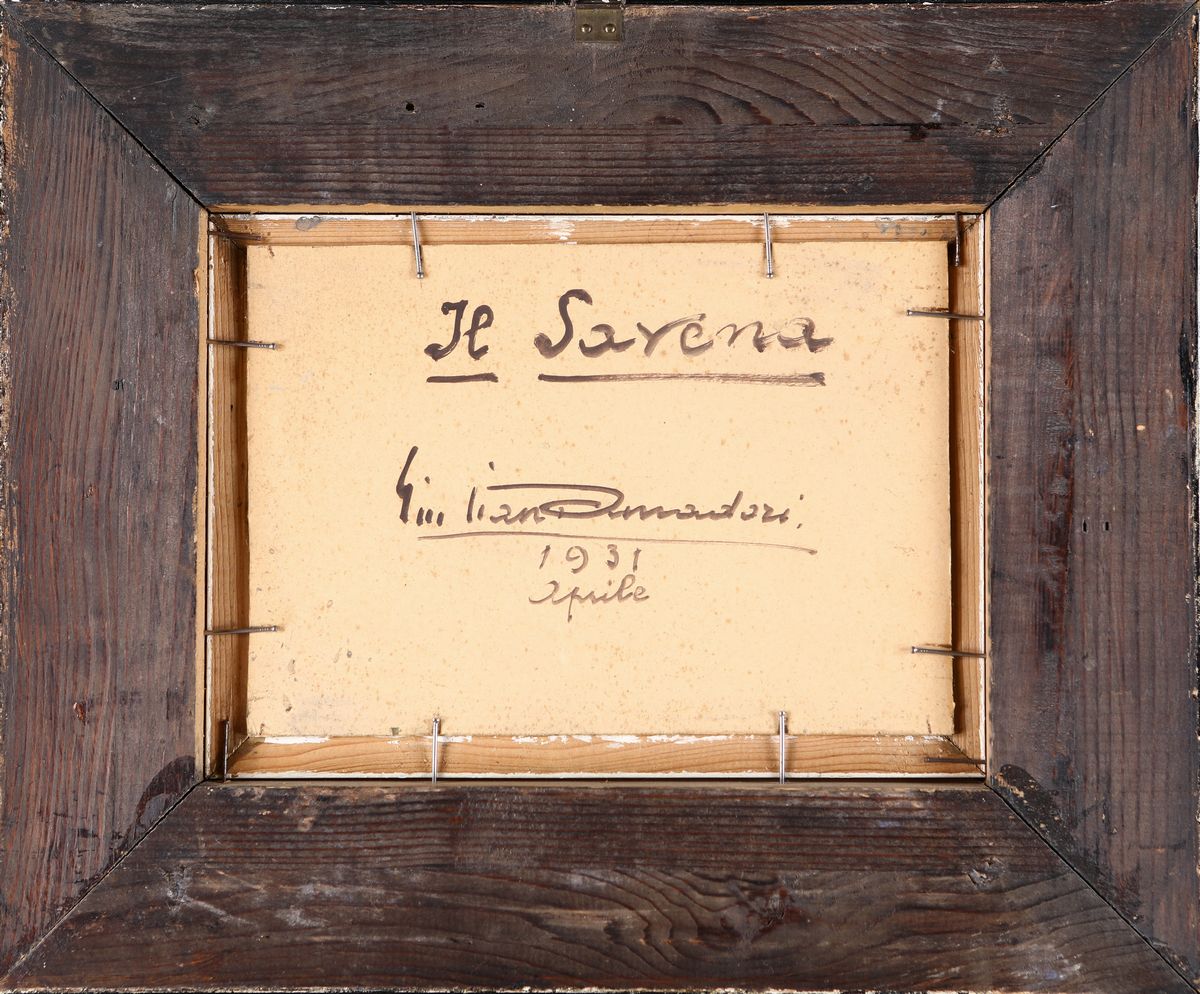 Il Savena
Giulian Amadori.
1931
Aprile